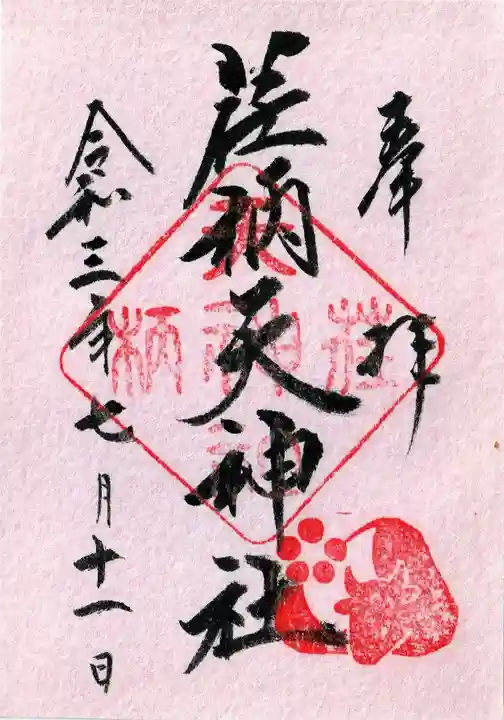 奉拝
荏柄天神社
令和三年七月十一日
荏
天神社
柄